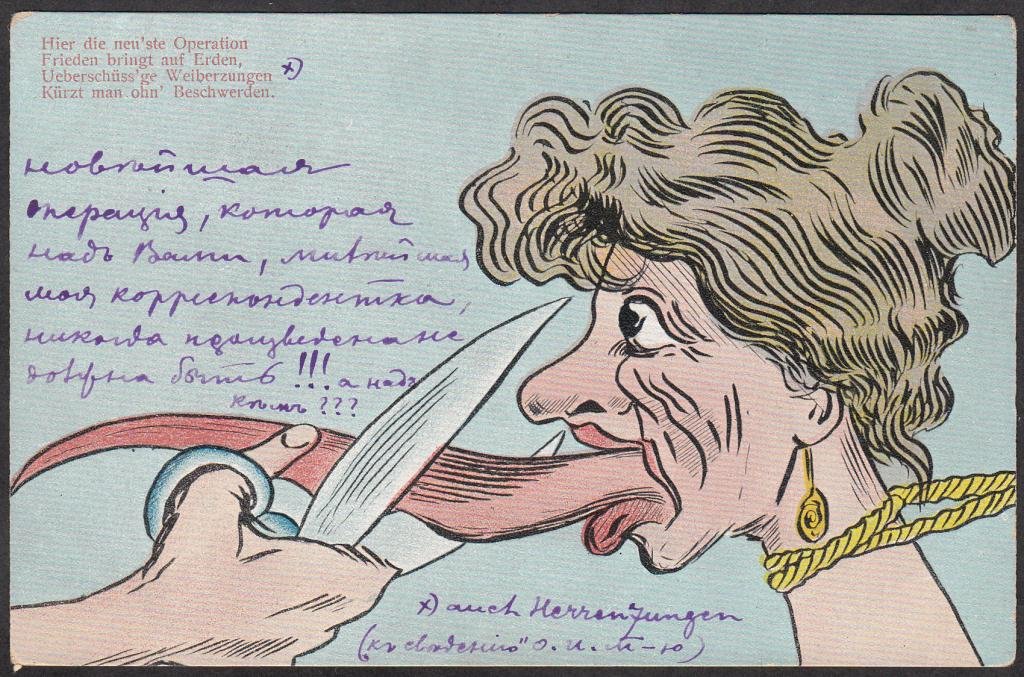 Hier die neu'ste Operation
Frieden bringt auf Erden,
Ueberschüss'ge Weiberzungen x)
Kürzt man ohn' Beschwerden.
новѣйшая
операція, которая
надъ Вами, милѣйшая
моя корреспондентка,
никогда произведена не
должна быть !!! а надъ
кѣмъ ???
x) auch Herrenzungen
(къ свѣдѣнію О. И. Т-ю)